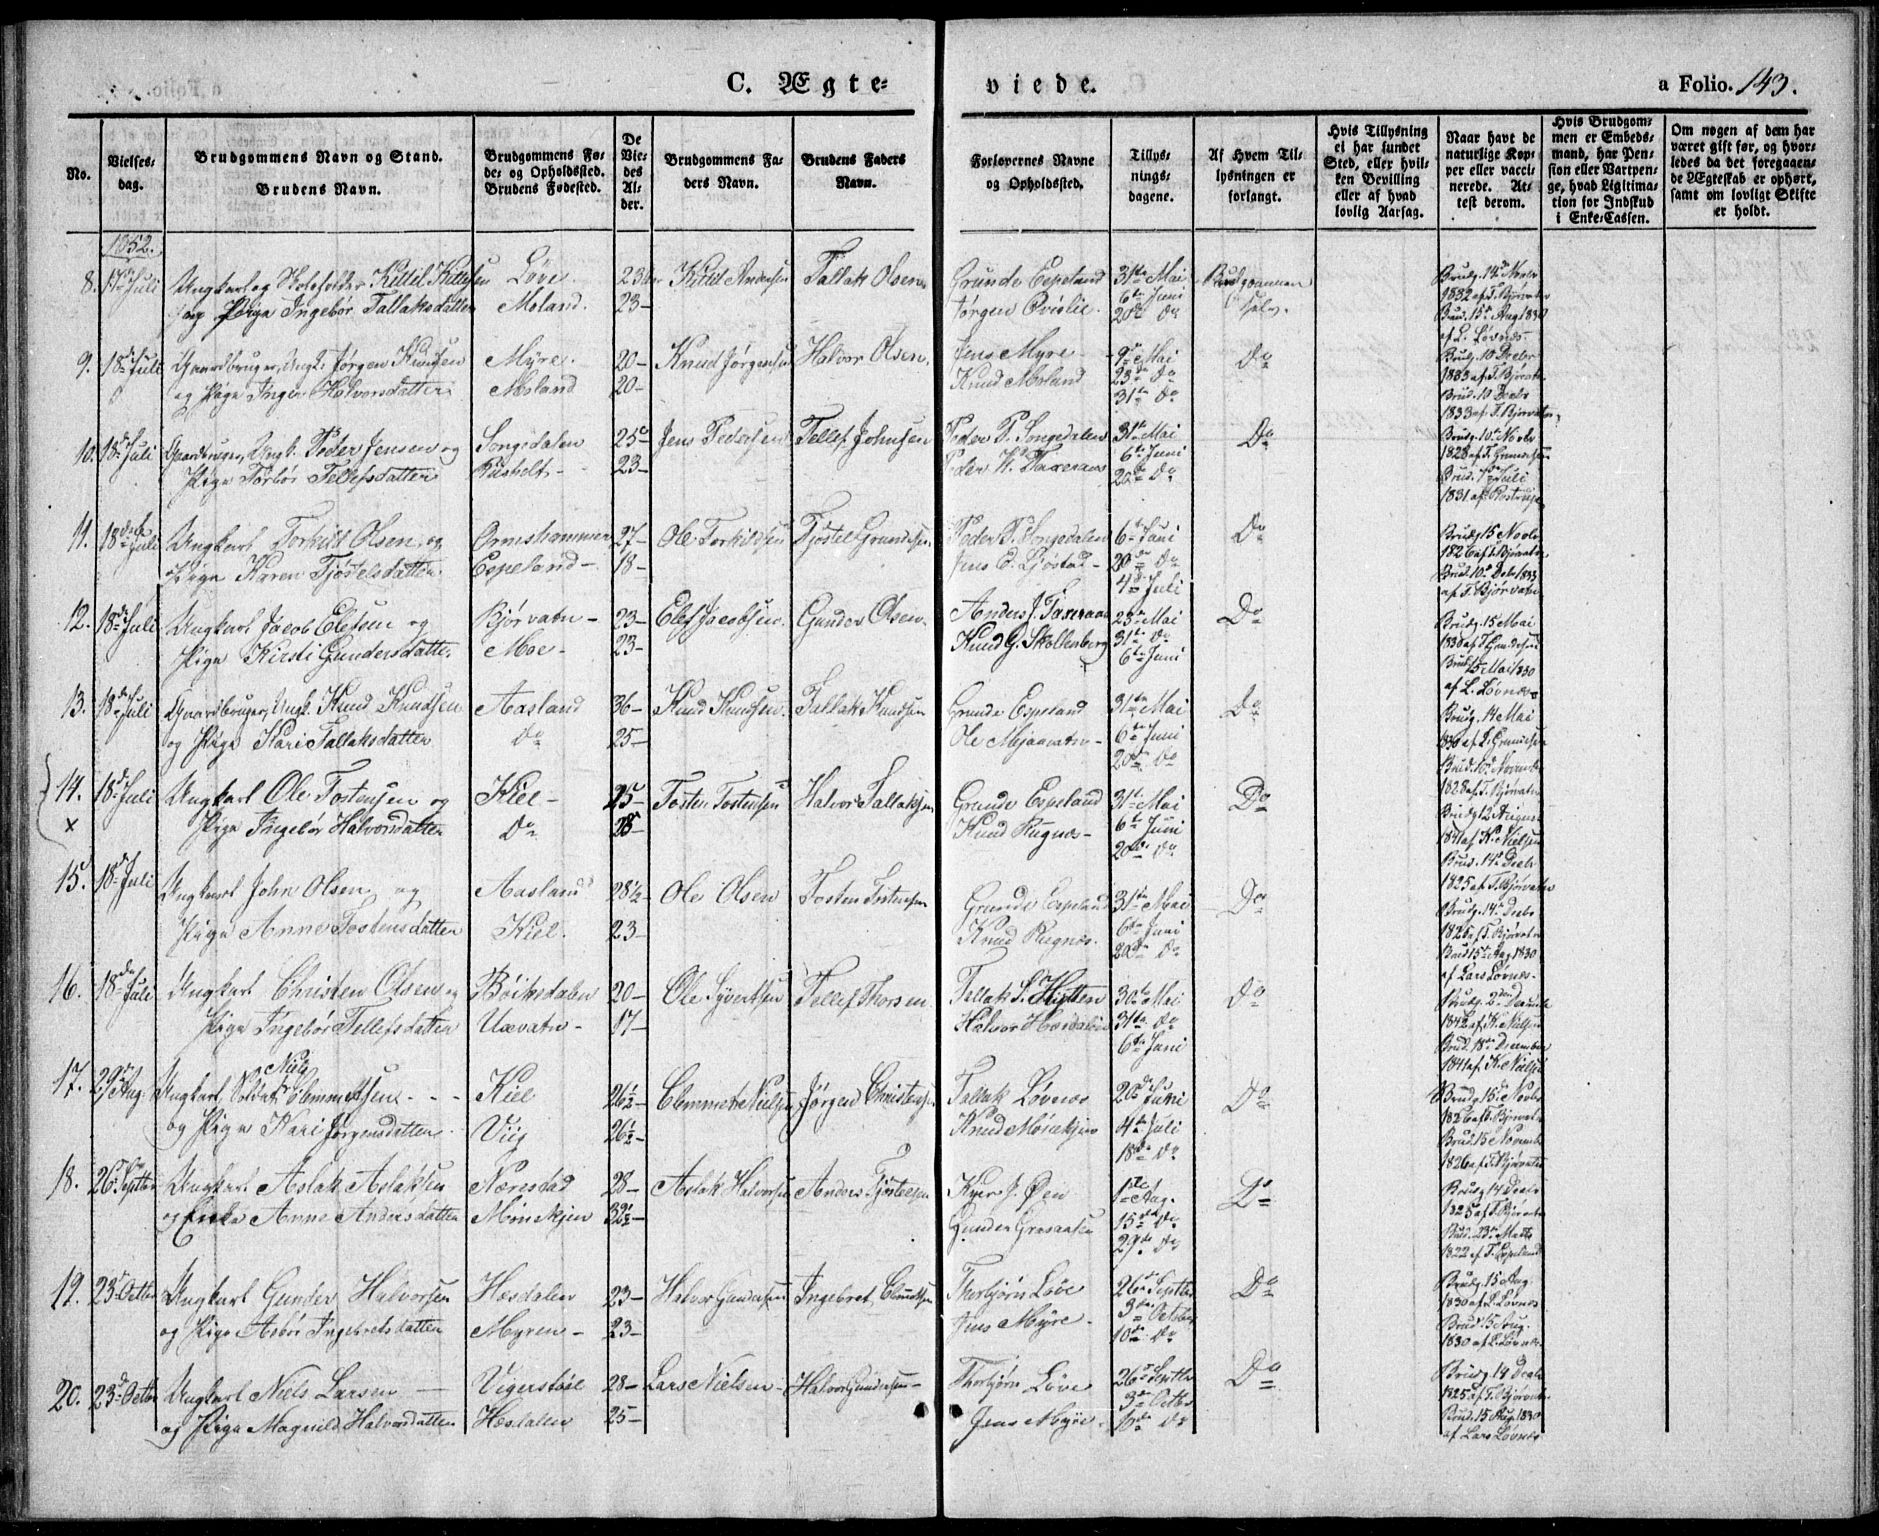 C. Ægte=
viede.
a Folio. 143.
No.
Vielses-dag.
Brudgommens Navn og Stand.
Brudens Navn.
Brudgommens Fø-de- og Opholdssted.
Brudens Fødested.
De Vie-des Al-der.
Brudgommens Fa-ders Navn.
Brudens Faders Navn.
Forlovernes Navne og Opholdssted.
Tillys-nings-dagene.
Af Hvem Til-lysningen er forlangt.
Hvis Tillysning ei har fundet Sted, eller hvil-ken Bevilling eller af hvad lovlig Aarsag.
Naar havt de naturlige Kop-per eller vacci-nerede. At-test derom.
Hvis Brudgom-men er Embeds-mand, har Pen-sion eller Vartpen-ge, hvad Ligitima-tion for Indskud i Enke-Cassen.
Om nogen af dem har været gift før, og hvor-ledes da det foregaaen-de Ægteskab er ophørt, samt om lovligt Skifte er holdt.
1852.
8. 17de Juli Ungkarl og Skoleholder Kittil Kittilsen Løve 23 Kittil Andersen Tallak Olsen Grunde Espeland 31te Mai Brudgommen Brudg. 14de Novbr
og Pige Ingebør Tallaksdatter Moland. 23- Jørgen 6te Juni selv. 1832 af T. Bjørvatn
20de Do Brud. 15de Aug 1830
af L. Løvnes
9. 18de Juli Gaardbruger, Ungk. Jørgen Knudsen Myre. 20- Knud Jørgensen Halvor Olsen. Jens Myre 9de Mai Do Brudg. 10 Decbr
og Pige Inger Halvorsdatter Moland 20- Knud Moland 23de Do 1833 af T. Bjørvatn
31te Do Brud. 10 Decbr
1833 af T. Bjørvatn
10. 18de Juli Gaardbruger, Ungk. Peder Jensen og Songedalen 25 Jens Pedersen Tellef Johnsen Peder P. Songedalen 31te Mai Do Brudg. 10de Novbr
Pige Torbør Tellefsdatter Risholt 23- Peder H. Taxeraas 6te Juni 1828 af
20de Do Brud. Juli
1831 af
11. 18de Juli Ungkarl Torkild Olsen og Ormshommen 27- Ole Torkildsen Tjøstel Grundesen Peder P. Songedalen 6te Juni Do Brudg 15 Novbr
Pige Karen Tjøstelsdatter. Espeland- 18- Jens E. 20de Do 1826 af T. Bjørvatn
4de Juli Brud. 10de Decbr 1833
af T. Bjørvatn
12. 18de Juli Ungkarl Jacob Elefsen og Bjørvatn- 23- Elef Jacobsen Gunder Olsen Anders J. Taxeraas 23de Mai Do Brudg. 15 Mai
Pige Kirsti Gundersdatter Moe- 23- Knud G. Skollenberg 31te Do 1830 af
6te Juni Brud 15 Mai 1830
af L. Løvnes
13. 18de Juli Gaardbruger, Ungk. Knud Knudsen Aasland 36- Knud Knudsen Tallak Knudsen Grunde Espeland 31te Mai Do Brudg. 14 Mai
og Pige Kari Tallaksdatter Do 25- Ole Mjaavatn- 6te Juni 1830 af
20de Do Brud. 10de Novembr
1828 af T. Bjørvatn
14. 18de Juli Ungkarl Ole Tostensen og Kiel- 25- Tosten Tostensen Halvor Tallaksen Grunde Espeland 31te Mai Do Brudg 12 August
x Pige Ingebør Halvorsdatter Do 28 Knud Rugnes- 6te Juni 1841 af K. Nielsen
20de Do Brud. 14de Decbr
1825 af T. Bjørvatn
15. 18de Juli Ungkarl John Olsen og Aasland 28½- Ole Olsen Tosten Tostensen Grunde Espeland 31te Mai Do Brudg. 14de Decbr
Pige Anne Tostensdatter Kiel. 23- Knud Rugnes. 6te Juni 1826 af T. Bjørvatn
20de Do Brud 15de Aug 1830
af Lars Løvnes-
16. 18de Juli Ungkarl Christen Olsen og Bøiksdalen 20- Ole Syvertsen Tellef Thorsen Tallak S. Hytten 30te Mai Do Brudg. 2den Decembr
Pige Ingebør Tellefsdatter Uævatn- 17- Halvor 31te Do 1842 af K. Nielsen
6te Juni Brud. 18de December
1841 af K. Nielsen
17. 29de Aug. Ungkarl Soldat Niels Clemmetsen- - - Kiel 26½- Clemmet Nielsen Jørgen Christensen Tallak Løvnes 20de Juni Do Brudg. 15de Novbr
og Pige Kari Jørgensdatter Viig 26½- Knud Mønekjen 4de Juli 1826 af T. Bjørvatn
18de Do Brud 15 Novembr
1826 af T. Bjørvatn
18. 26de Septbr Ungkarl Aslak Aslaksen Næresdad 28- Aslak Halvorsen Anders Tjøstelsen J. Øen 1ste Aug. Do Brudg 14 Decbr
og Enke Anne Andersdatter Mønekjen 32½- Gunder 15de Do 1825 af T. Bjørvatn
29de Do Brud. 23de Marts
1822 af T. Espeland
19. 23de Octbr Ungkarl Gunder Halvorsen Hesdalen 23- Halvor Gundersen Ingebret Clemmetsen Thorbjørn Løve 26de Septbr Do Brudg. 15 Aug.
og Pige Asbør Ingebretsdatter Myren- 23- Jens Myre- 3de October 1830 af L. Løvnes
10de Do Brud 15 Aug.
1830 af L. Løvnes
20. 23de Octbr Ungkarl Niels Larsen Vigerstøl 28- Lars Nielsen Halvor Gundersen- Thorbjørn Løve 26de Septbr Do Brudg 14 Decbr
og Pige Magnild Halvorsdatter Hesdalen 25- Jens Myre. 3de Octbr 1825 af T. Bjørvatn
10de Do Brud. 15 Aug. 1830
af Lars Løvnes